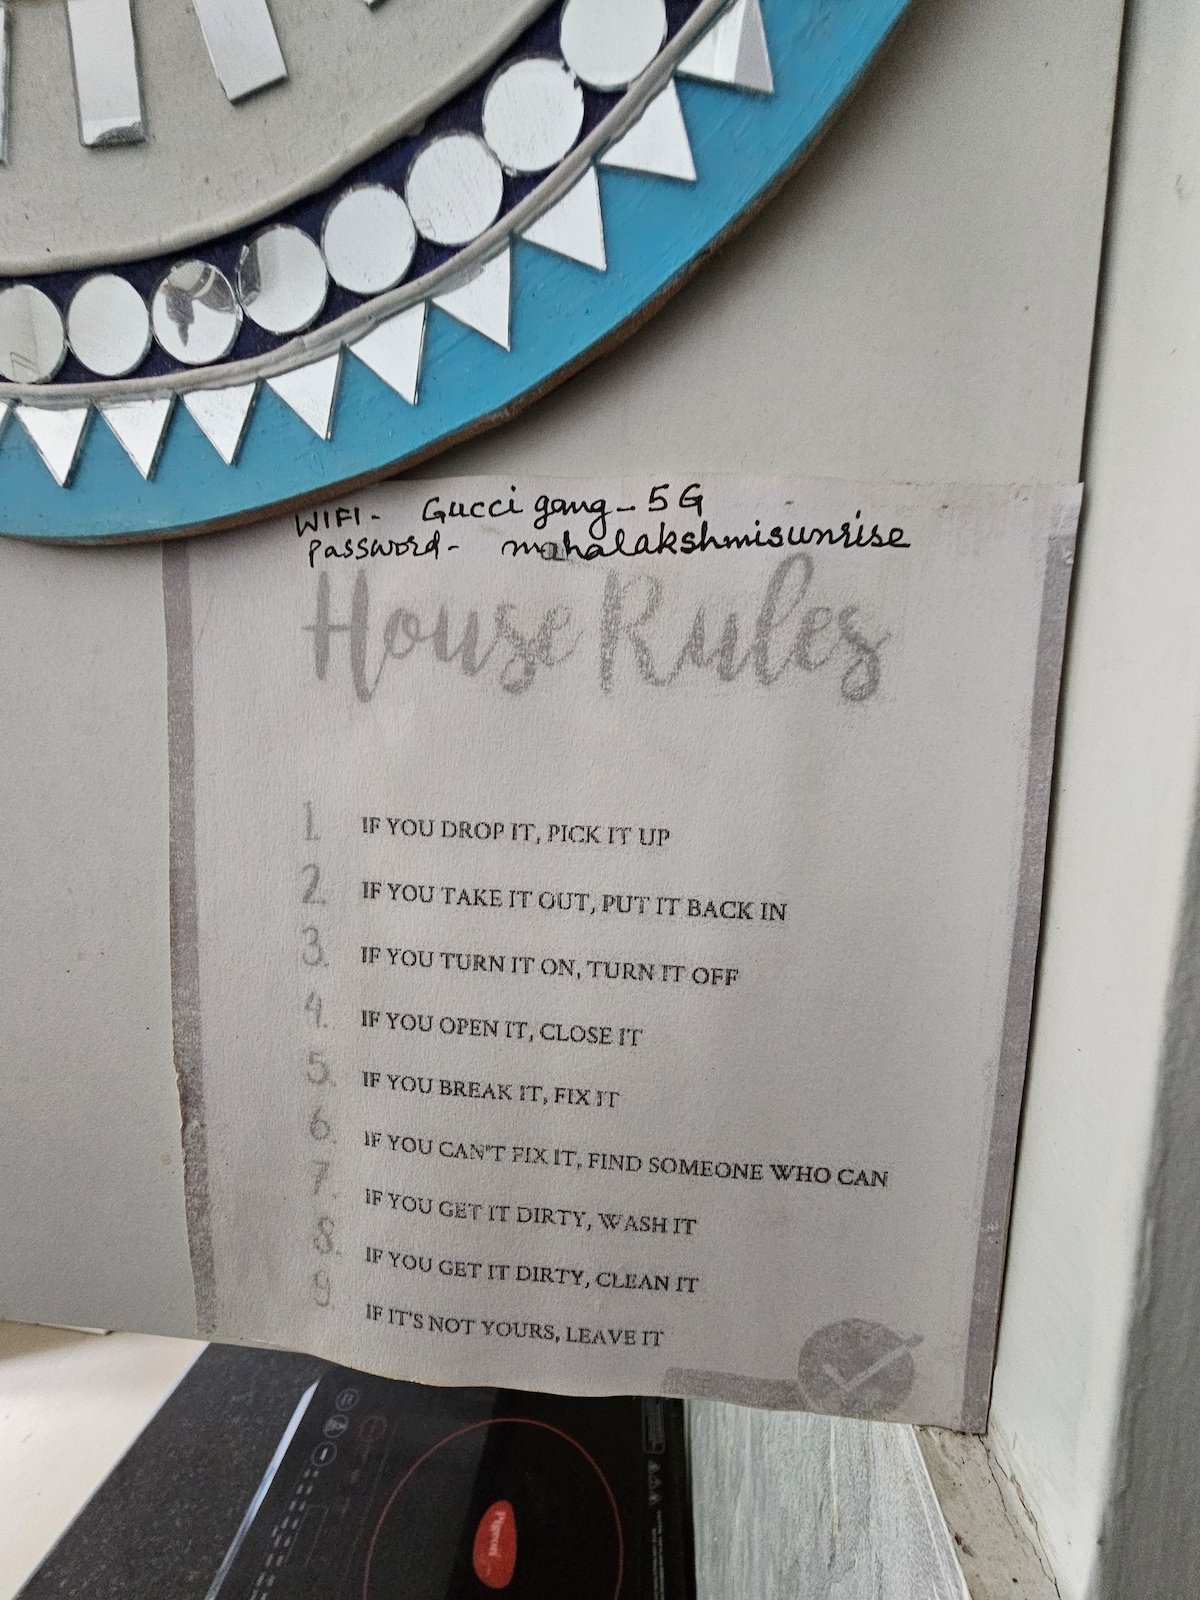 WIFI- Gucci gang_5G
Password- mahalakshmisunrise
House Rules
1. IF YOU DROP IT, PICK IT UP
2. IF YOU TAKE IT OUT, PUT IT BACK IN
3. IF YOU TURN IT ON, TURN IT OFF
4. IF YOU OPEN IT, CLOSE IT
5. IF YOU BREAK IT, FIX IT
6. IF YOU CAN'T FIX IT, FIND SOMEONE WHO CAN
7. IF YOU GET IT DIRTY, WASH IT
8. IF YOU GET IT DIRTY, CLEAN IT
9 IF IT'S NOT YOURS, LEAVE IT
Pigeon